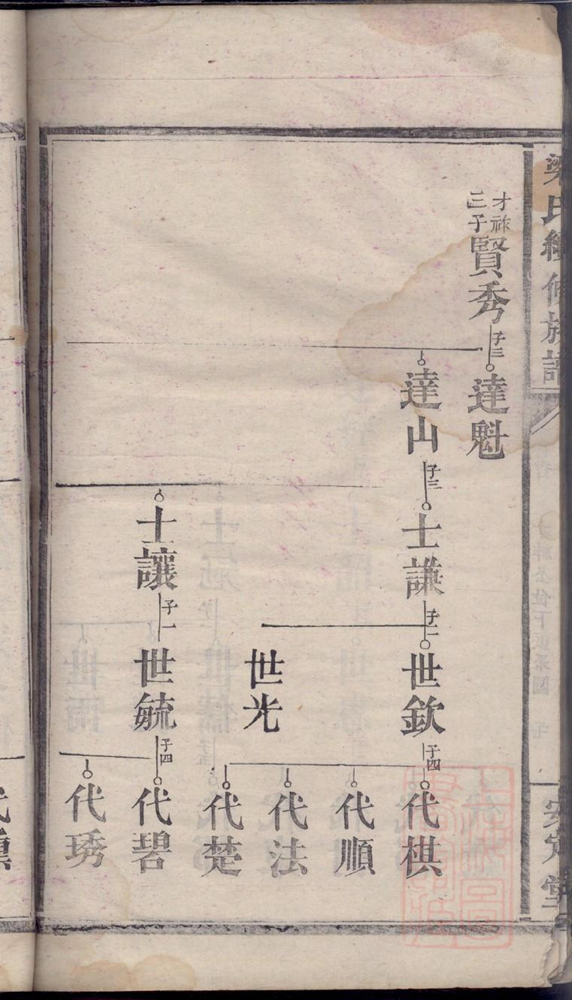 梁氏經修族譜
安定堂
才祿
三子
賢秀
子三
達魁
達山
子三
士謙
子二
世欽
子四
代棋
代順
代法
代楚
世光
士讓
子一
世毓
子四
代碧
代琇